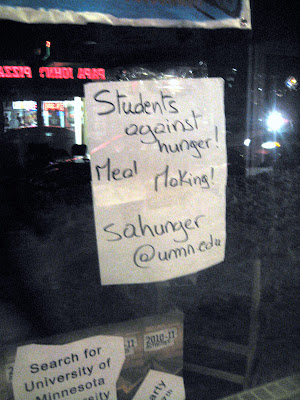 PAPA JOHN'S PIZZA
Students
against
hunger!
Meal Making!
sahunger
@umn.edu
2010-11
Search for
University of
Minnesota